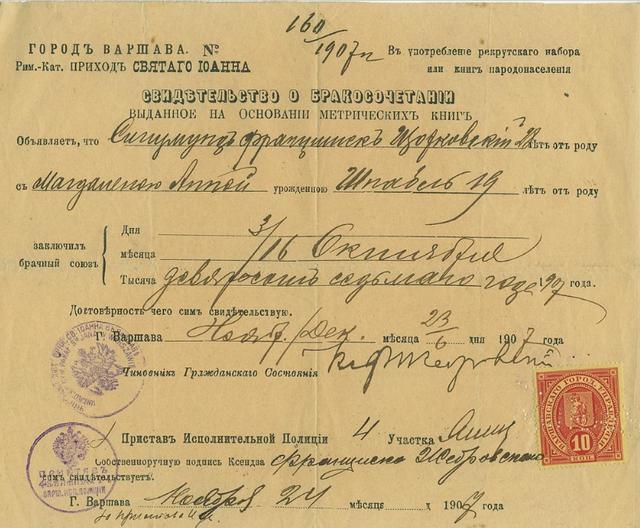 160
ГОРОДЪ ВАРШАВА. № 1907 г.
Рим.-Кат. ПРИХОДЪ СВЯТАГО IОАННА
Въ употребленiе рекрутскаго набора
или книгъ народонаселенiя
СВИДѢТЕЛЬСТВО О БРАКОСОЧЕТАНIИ
ВЫДАННОЕ НА ОСНОВАНIИ МЕТРИЧЕСКИХЪ КНИГЪ
Объявляетъ, что Сигизмундъ Францишекъ 22 лѣтъ отъ роду
съ Магдаленою Анной урожденною Шнабель 19 лѣтъ отъ роду
заключилъ
брачный союзъ
Дня
мѣсяца 3/16 Октября
Тысяча девятьсотъ седьмаго года 1907 года.
Достовѣрность чего симъ свидѣтельствую.
Г. Варшава Нояб./Дек. мѣсяца 23/6 дня 1907 года
Чиновникъ Гражданскаго Состоянiя
Приставъ Исполнительной Полицiи 4 Участка
Собственноручную подпись Ксендза Францишка
симъ свидѣтельствуетъ.
Г. Варшава Ноября 24 мѣсяца д 1907
10
КОП.